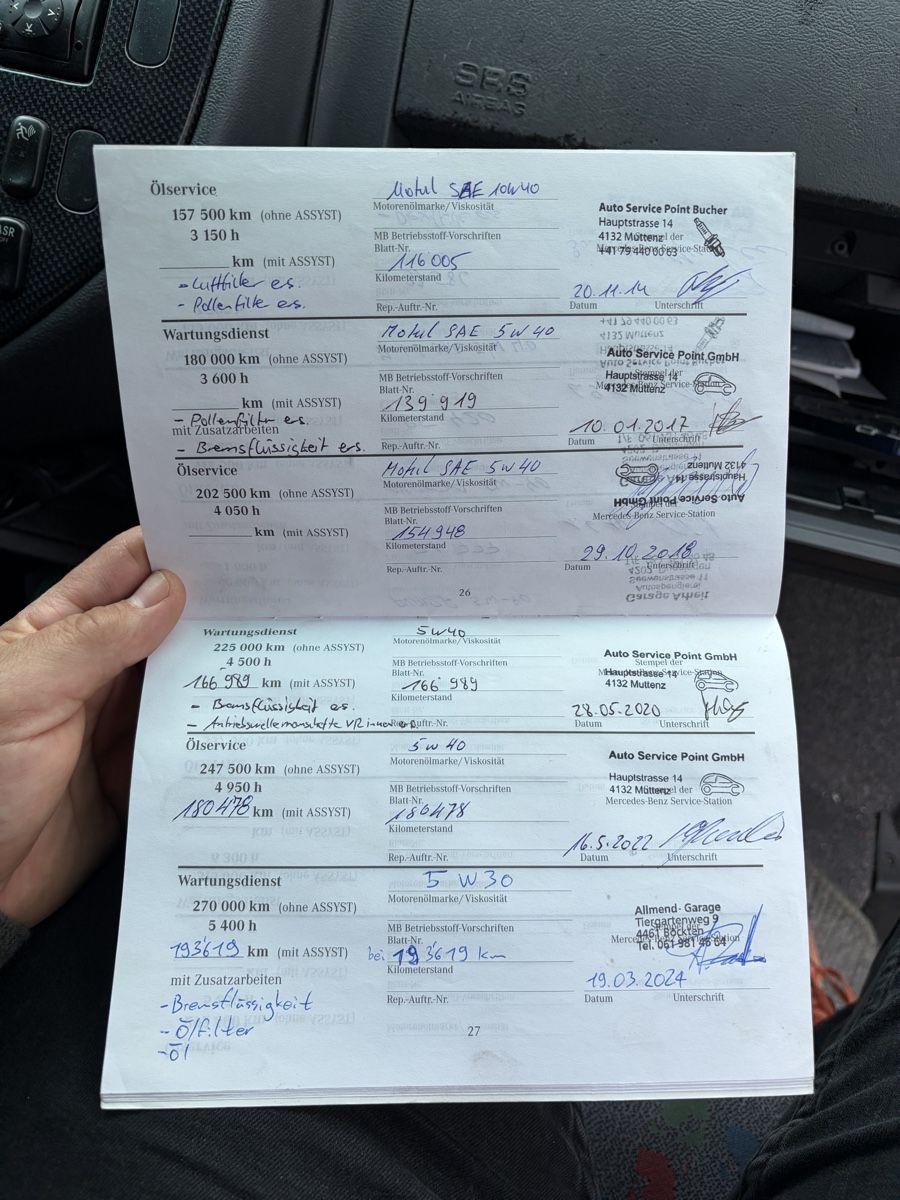 SRS
AIRBAG
ASR
OFF
Ölservice
Motul SAE 10W40
Motorenölmarke/Viskosität
157 500 km (ohne ASSYST)
3 150 h
MB Betriebsstoff-Vorschriften
Blatt-Nr.
km (mit ASSYST)
116005
Kilometerstand
- Luftfilter ers.
- Pollenfilter ers.
Rep.-Auftr.-Nr.
Auto Service Point Bucher
Hauptstrasse 14
4132 Muttenz
Stempel der
Mercedes-Benz Service-Station
+41 79 440 00 63
20.11.14
Datum
Unterschrift
Wartungsdienst
Motul SAE 5W40
Motorenölmarke/Viskosität
180 000 km (ohne ASSYST)
3 600 h
MB Betriebsstoff-Vorschriften
Blatt-Nr.
km (mit ASSYST)
139'919
Kilometerstand
- Pollenfilter ers.
mit Zusatzarbeiten
- Bremsflüssigkeit ers.
Rep.-Auftr.-Nr.
Auto Service Point GmbH
Stempel der
Hauptstrasse 14
Mercedes-Benz Service-Station
4132 Muttenz
10.01.2017
Datum
Unterschrift
Ölservice
Motul SAE 5W40
Motorenölmarke/Viskosität
202 500 km (ohne ASSYST)
4 050 h
MB Betriebsstoff-Vorschriften
Blatt-Nr.
km (mit ASSYST)
154948
Kilometerstand
Rep.-Auftr.-Nr.
Auto Service Point GmbH
Hauptstrasse 14
4132 Muttenz
Stempel der
Mercedes-Benz Service-Station
29.10.2018
Datum
Unterschrift
26
Wartungsdienst
5W40
Motorenölmarke/Viskosität
225 000 km (ohne ASSYST)
4 500 h
MB Betriebsstoff-Vorschriften
Blatt-Nr.
166'989 km (mit ASSYST)
166'989
Kilometerstand
- Bremsflüssigkeit ers.
- Antriebswellemanschette
Rep.-Auftr.-Nr.
Auto Service Point GmbH
Stempel der
Hauptstrasse 14
Mercedes-Benz Service-Station
4132 Muttenz
28.05.2020
Datum
Unterschrift
Ölservice
5W40
Motorenölmarke/Viskosität
247 500 km (ohne ASSYST)
4 950 h
MB Betriebsstoff-Vorschriften
Blatt-Nr.
180478 km (mit ASSYST)
180478
Kilometerstand
Rep.-Auftr.-Nr.
Auto Service Point GmbH
Hauptstrasse 14
4132 Muttenz
Stempel der
Mercedes-Benz Service-Station
16.5.2022
Datum
Unterschrift
Wartungsdienst
5 W30
Motorenölmarke/Viskosität
270 000 km (ohne ASSYST)
5 400 h
MB Betriebsstoff-Vorschriften
Blatt-Nr.
193'619 km (mit ASSYST)
bei 193'619 km
Kilometerstand
mit Zusatzarbeiten
Rep.-Auftr.-Nr.
- Bremsflüssigkeit
- Ölfilter
- Öl
Allmend-Garage
Tiergartenweg 9
4461 Böckten
Stempel der
Mercedes-Benz Service-Station
Tel. 061 981 46 64
19.03.2024
Datum
Unterschrift
27